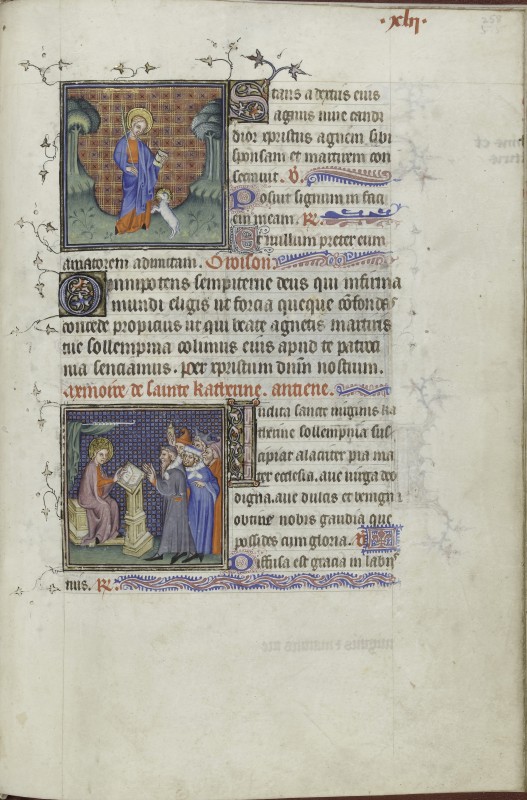 ·xlii·
Stans a dextris eius
agnus nive candi
dior xpristus agnem sibi
sponsam et martirem con
secravit. V.
Posuit signum in faci
em meam. R.
Et nullum preter eum
amatorem admittam. Oroison
Omnipotens sempiterne deus qui infirma
mundi eligis ut forcia queque confondas
concede propicius ut qui beate agnetis martiris
tue sollempnia colimus eius apud te patroci
nia senciamus. per xpristum dnm nostrum.
memoire de sainte katherine. antiene.
Inclita sancte virginis ka
therine sollempnia sus
cipiat alacriter pia ma
ter ecclesia. ave virga deo
digna. ave dulcis et benigna
obtine nobis gaudia que
possides cum gloria. V.
Diffusa est gracia in labiis
tuis. R.